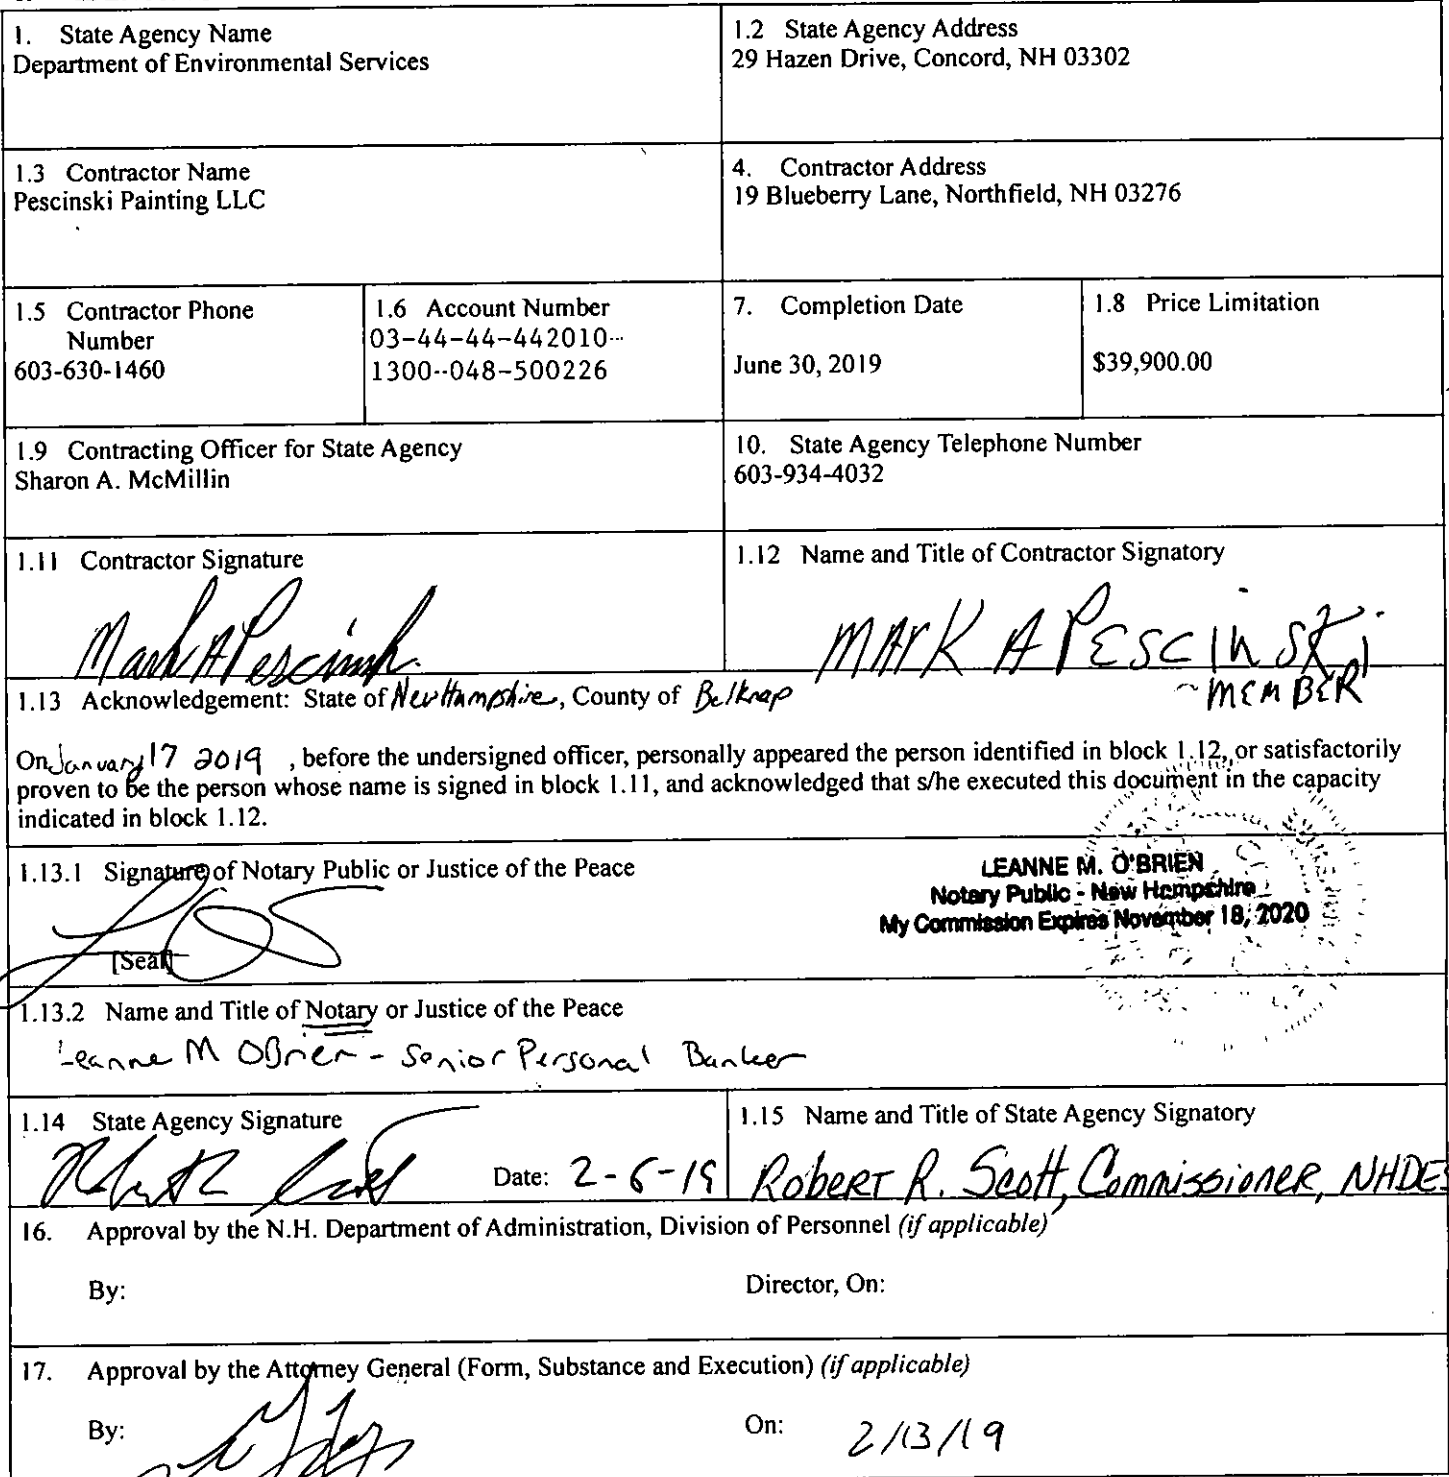 1. State Agency Name
Department of Environmental Services
1.2 State Agency Address
29 Hazen Drive, Concord, NH 03302
1.3 Contractor Name
Pescinski Painting LLC
4. Contractor Address
19 Blueberry Lane, Northfield, NH 03276
1.5 Contractor Phone
Number
603-630-1460
1.6 Account Number
03-44-44-442010-
1300-048-500226
7. Completion Date
June 30, 2019
1.8 Price Limitation
$39,900.00
1.9 Contracting Officer for State Agency
Sharon A. McMillin
10. State Agency Telephone Number
603-934-4032
1.11 Contractor Signature
Mark A Pescinski
1.12 Name and Title of Contractor Signatory
MArK A PESCINSKi
- MEMBER
1.13 Acknowledgement: State of New Hampshire, County of Belknap
On January 17 2019 , before the undersigned officer, personally appeared the person identified in block 1.12, or satisfactorily
proven to be the person whose name is signed in block 1.11, and acknowledged that s/he executed this document in the capacity
indicated in block 1.12.
1.13.1 Signature of Notary Public or Justice of the Peace
[Seal]
LEANNE M. O'BRIEN
Notary Public - New Hampshire
My Commission Expires November 18, 2020
1.13.2 Name and Title of Notary or Justice of the Peace
Leanne M OBrien - Senior Personal Banker
1.14 State Agency Signature
Date: 2-6-19
1.15 Name and Title of State Agency Signatory
Robert R. Scott, Commissioner, NHDES
16. Approval by the N.H. Department of Administration, Division of Personnel (if applicable)
By:
Director, On:
17. Approval by the Attorney General (Form, Substance and Execution) (if applicable)
By:
On: 2/13/19